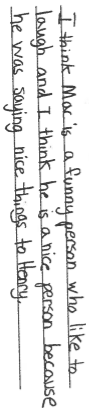 I think Mac is a funny person who like to
laugh and I think he is a nice person because
he was saying nice things to Henry.